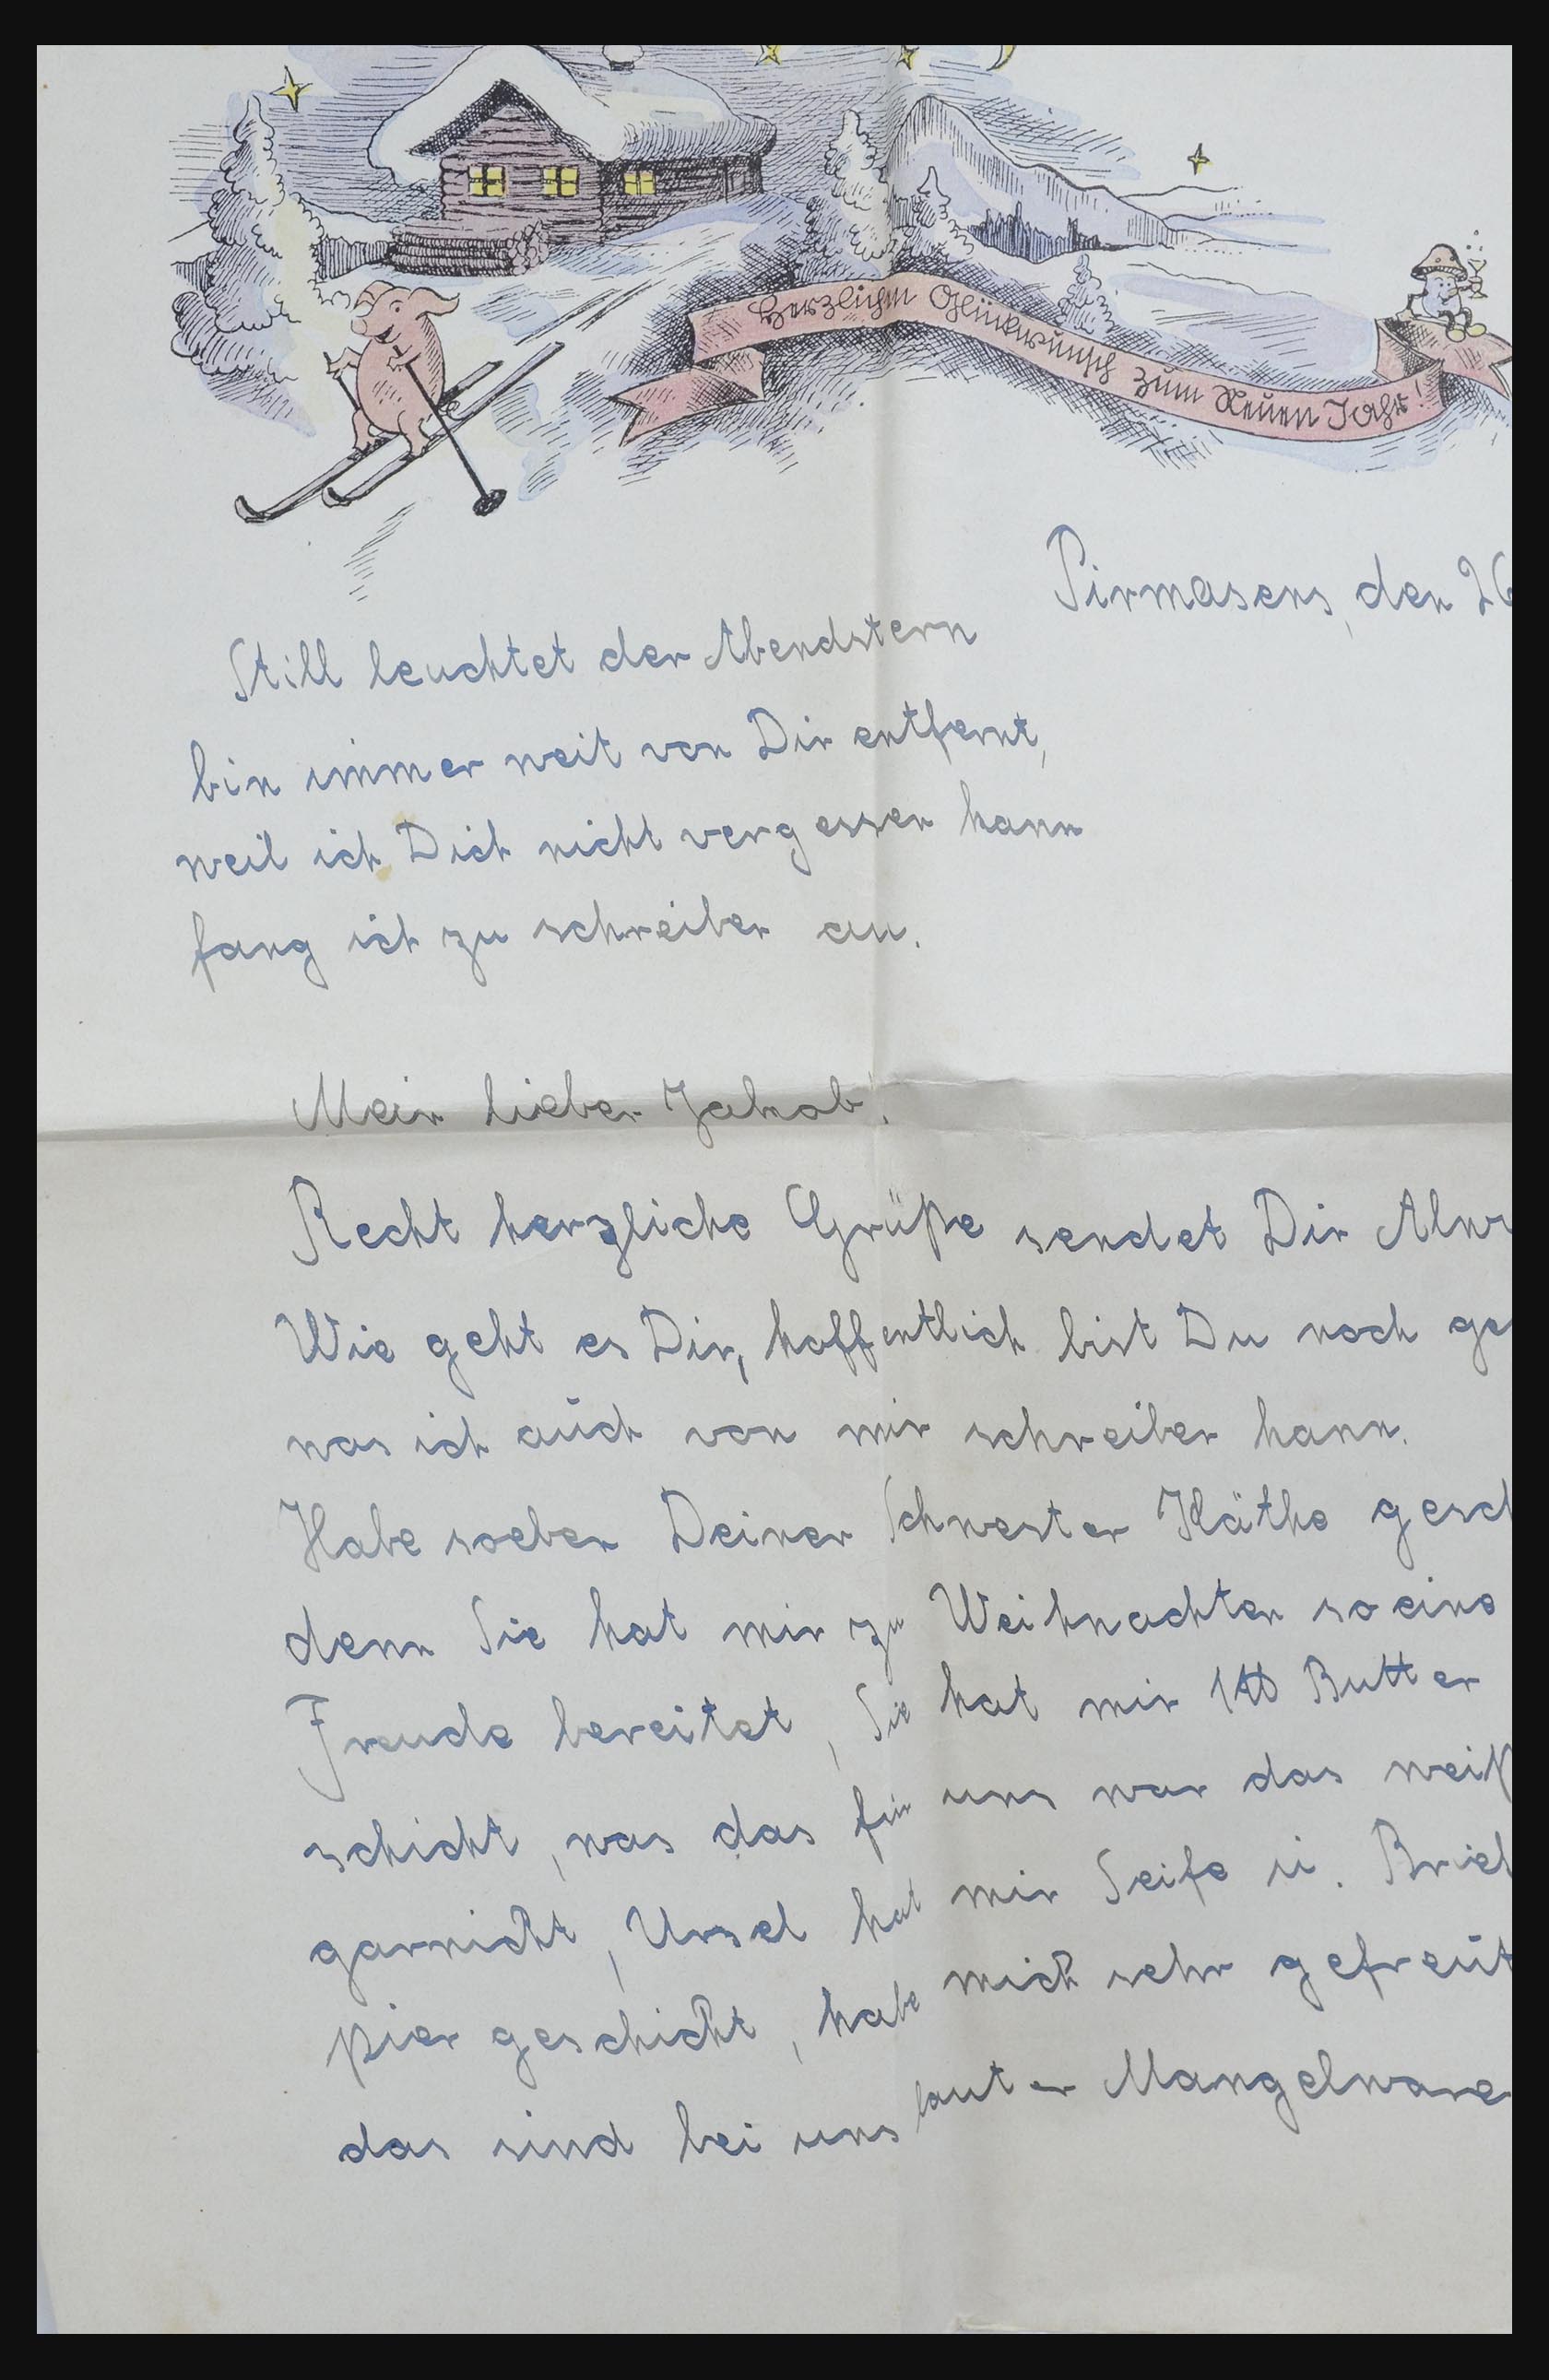 Herzlichen Glückwunsch zum Neuen Jahr!
Pirmasens, den 26
Still leuchtet der Abendstern
bin immer weit von Dir entfernt,
weil ich Dich nicht vergessen kann
fang ich zu schreiben an.
Mein lieber Jakob,
Recht herzliche Grüße sendet Dir
Wie geht es Dir, hoffentlich bist Du noch ge
was ich auch von mir schreiben kann.
Habe soeben Deiner Schwester Käthe gesch
denn Sie hat mir zu Weihnachten so eine
Freude bereitet, Sie hat mir 1 ℔ Butter
schickt, was das für uns war das weiß
garnicht, Ursel hat mir Seife u. Brief
pier geschickt, habe mich sehr gefreut
das sind bei uns lauter Mangelware